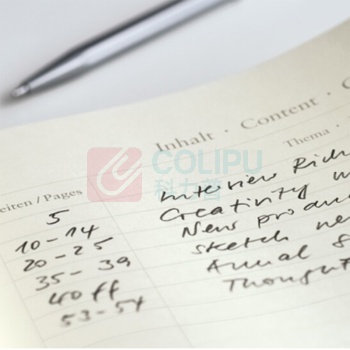 Inhalt · Content ·
Thema ·
eiten / Pages
COLIPU
科力普
5 Interview Rich
10-14 Creativity w
20-25 New produ
35-39 sketch ne
40 ff Annual
53-54 Thought